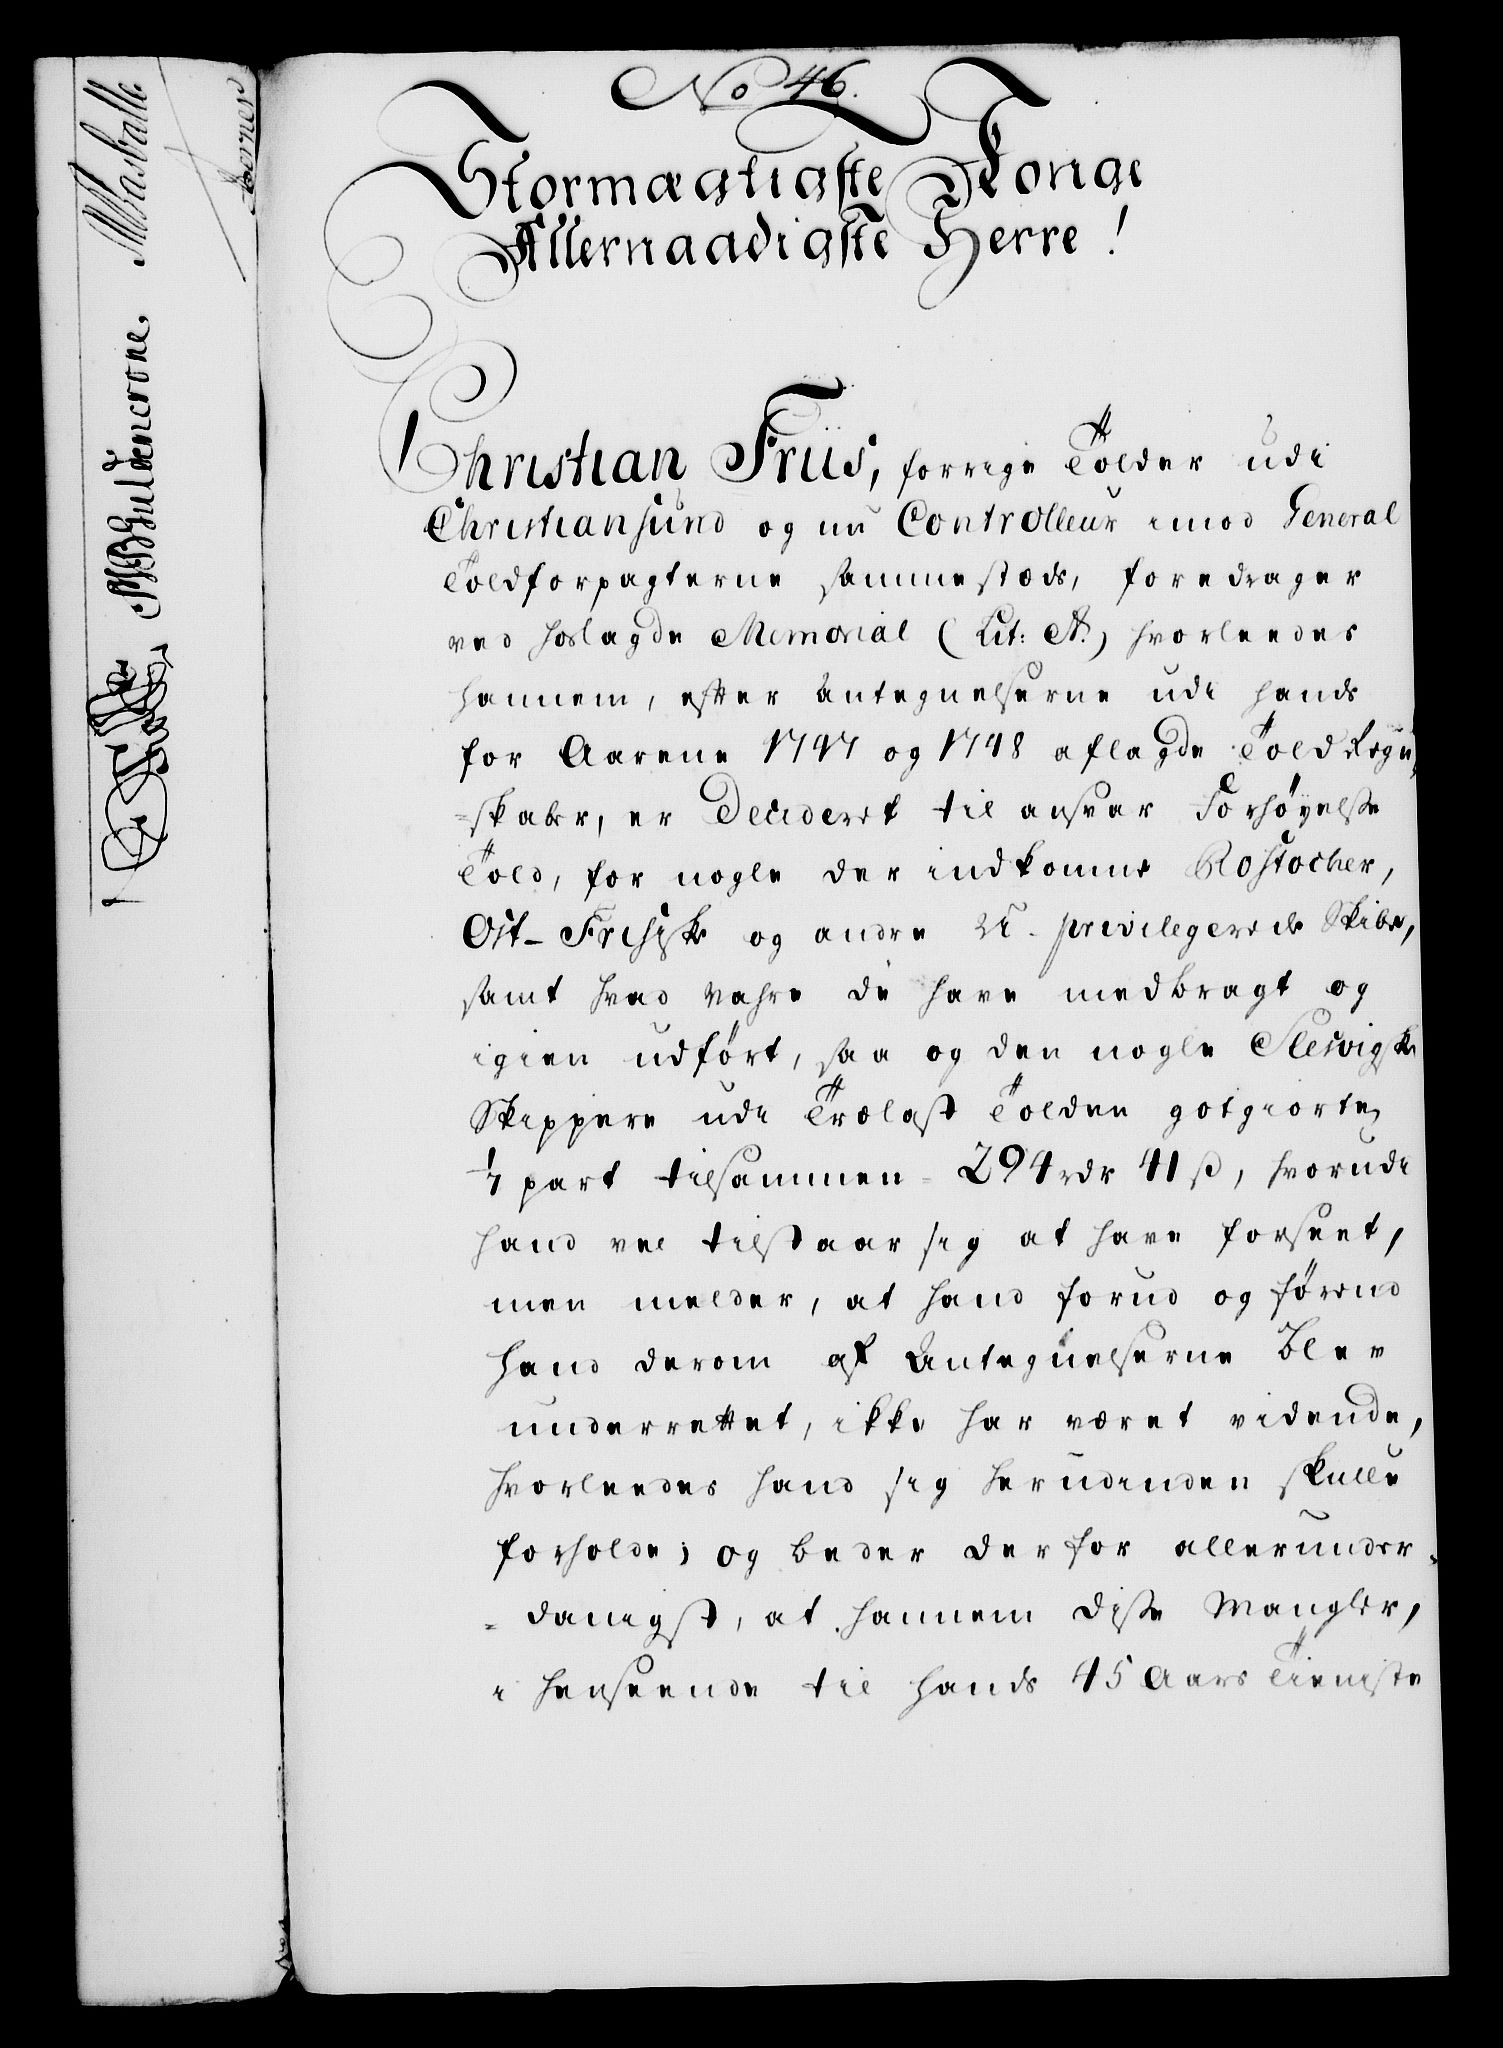 No 46.
Stormægtigste Konge
Allernaadigste Herre!
Christian Friis, forrige Tolder udi
Christiansund og nu Controlleur imod General
Toldforpagterne sammestæds, foredrager
ved hoslagde Memorial (Lit: A.) hvorleedes
hannem, efter Antegnelserne udi hands
for Aarene 1747 og 1748 aflagde Told Regn-
=skaber, er Decideret til ansvar Forhøyelse
Told, for nogle der indkomne Rostocker,
Ost-Frisiske og andre U-privilegerede Skibe,
samt hvad Vahre de have medbragt og
igien udført, saa og den nogle Slesvigske
Skippere udi Trælast Tolden gotgiorte
1/7 part tilsammen = 294 rdr 41 ß, hvorudi
hand vel tilstaar sig at have forseet,
men melder, at hand forud og førend
hand derom af Antegnelserne blev
underrettet, ikke har været vidende,
hvorleedes hand sig herudinden skulle
forholde; og beder derfor allerunder-
=danigst, at hannem disse Mangler,
i henseende til hands 45 Aars Tieniste
MBGuldencrone.